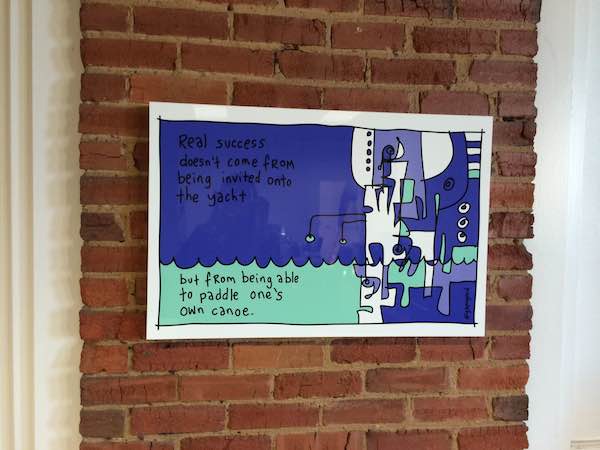 Real success
doesn't come from
being invited onto
the yacht
but from being able
to paddle one's
own canoe.